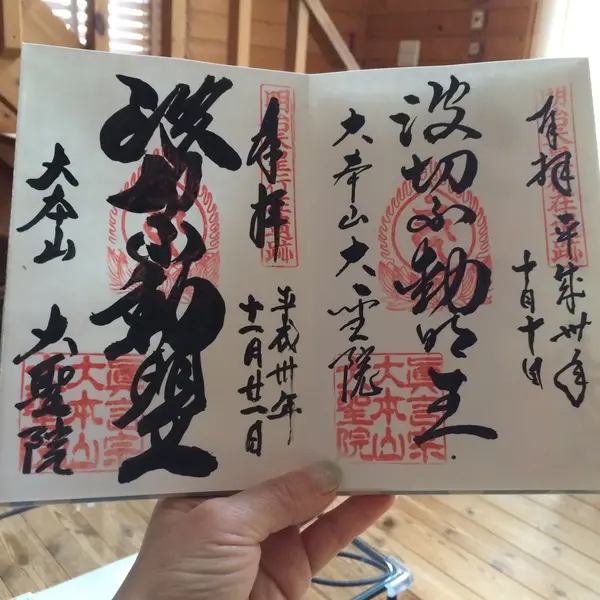 奉拝
平成卅年
十月十日
波切不動明王
大本山大聖院
眞言宗
大本山
大聖院
奉拝
平成卅年
十一月廿一日
波切不動明王
大本山
大聖院
眞言宗
大本山
大聖院